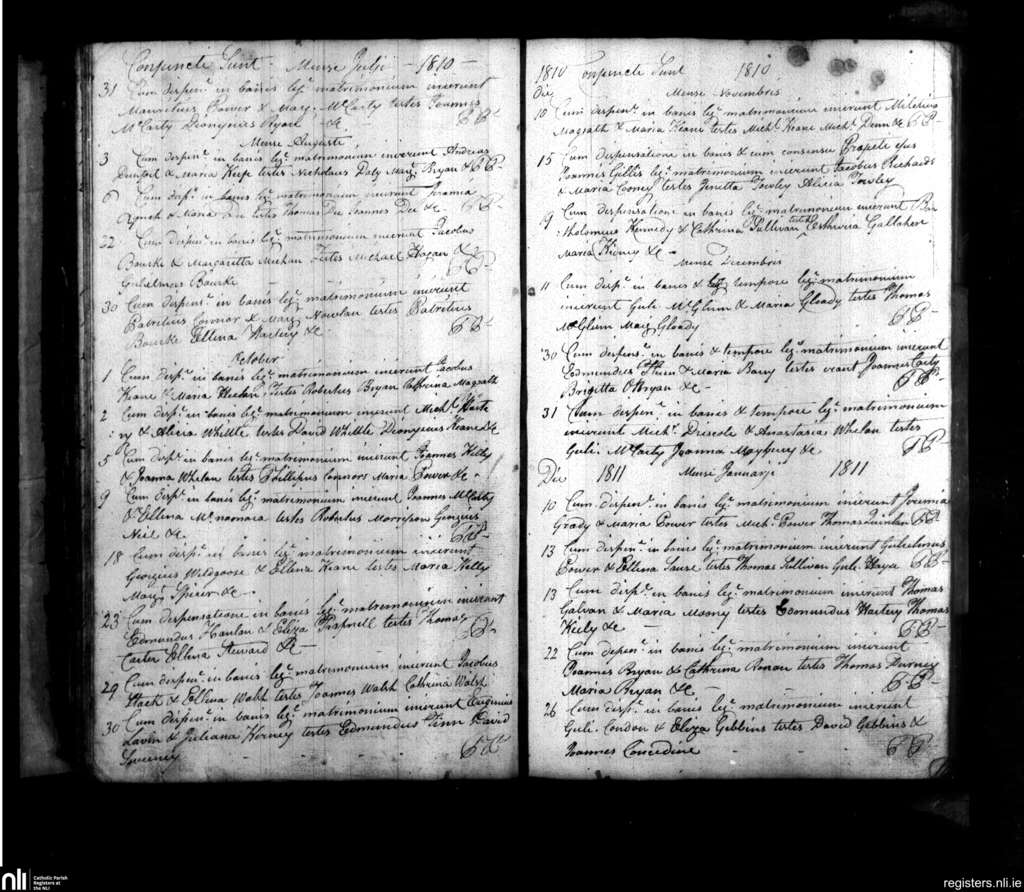 Conjuncti Sunt - Mense Julji - 1810 -
31 Cum dispen: in banis leg: matrimonium inierunt
Mauritius Power & Mary McCarty testes Joannes
McCarty Dionysius Ryan &c
Mense Auguste
3 Cum dispen: in banis leg: matrimonium inierunt Andreas
& Maria Keefe testes Nicholaus Daly Mary Bryan &
6 Cum disp: in banis leg: matrimonium inierunt Jeremia
Lynch & Maria Dee testes Thomas Dee Joannes Dee &c
22 Cum dispen: in banis leg: matrimonium inierunt Jacobus
Bourke & Margaretta Meehan Testes Michael Hogan &
Gulielmus Bourke
30 Cum dispen: in banis leg: matrimonium inierunt
Patritius Connor & Mary Nowlan testes Patritius
Bourke Ellena Hartery &c
October
1 Cum disp: in banis leg: matrimonium inierunt Jacobus
Keane & Maria Testes Robertus Bryan Cathrina Magrath
2 Cum disp: in banis leg: matrimonium inierunt Mich:l Harte
:ry & Alicia Whittle testes David Whittle Dionysius Keane &c
5 Cum disp: in banis leg: matrimonium inierunt Joannes Kelly
& Joanna Whelan testes Phillipus Connors Maria Power &c
9 Cum disp: in banis leg: matrimonium inierunt Joannes McCarty
& Ellena testes Robertus Morrison
Neil &c
18 Cum disp: in banis leg: matrimonium inierunt
Georgius Wildgoose & Ellena Keane testes Maria Kelly
Mary Spicer &c
23 Cum dispensatione in banis leg: matrimonium inierunt
Edmundus Hanlan & Eliza testes Thomas
Carter Ellena Steward &c
29 Cum dispen: in banis leg: matrimonium inierunt Jacobus
Stack & Ellena Walsh testes Joannes Walsh Cathrina Walsh
30 Cum dispen: in banis leg: matrimonium inierunt Eugenius
Lavin & Juliana testes Edmundus Finn David
Sweeney
1810 Conjuncti Sunt 1810
Die Mense Novembris
10 Cum dispen: in banis leg: matrimonium inierunt
Magrath & Maria Keane testes Mich: Keane Mich: Dunn &c
15 Cum dispensatione in banis & cum consensu
Joannes Gillis leg: matrimonium inierunt Jacobus Richards
& Maria Cooney testes Towley Alicia Towley
9 Cum dispensation: in banis leg: matrimonium inierunt Bar
:tholomeus Kennedy & Cathrina Sullivan testes Gallaher
Maria &c -
Mense Decembris
11 Cum disp: in banis & tempore leg: matrimonium
inierunt Guli: McGlum & Maria Gleady testes Thomas
McGlum Mary Gleady
30 Cum dispen: in banis & tempore leg: matrimonium inierunt
Edmundus & Maria Barry testes erant Joannes Carty
Brigitta O Bryan &c -
31 Cum dispen: in banis & tempore leg: matrimonium
inierunt Mich: Driscole & Anastasia Whelan testes
Guli: McCarty Joanna Mayberry &c
Die 1811 Mense Januarji 1811
10 Cum dispen: in banis leg: matrimonium inierunt Jeremia
Grady & Maria Power testes Mich: Power Thomas Quinlan
13 Cum dispen: in banis leg: matrimonium inierunt Gulielmus
Power & Ellena testes Thomas Sullivan Guli: Hayse
13 Cum disp: in banis leg: matrimonium inierunt Thomas
Galvan & Maria Moony testes Edmundus Hartery Thomas
Kiely &c -
22 Cum dispen: in banis leg: matrimonium inierunt
Joannes Bryan & Cathrina Ronan testes Thomas Durney
Maria Bryan &c -
26 Cum disp: in banis leg: matrimonium inierunt
Guli: Condon & Eliza Gibbins testes David Gibbins &
Joannes Concedine
nli Catholic Parish
Registers at
the NLI
registers.nli.ie